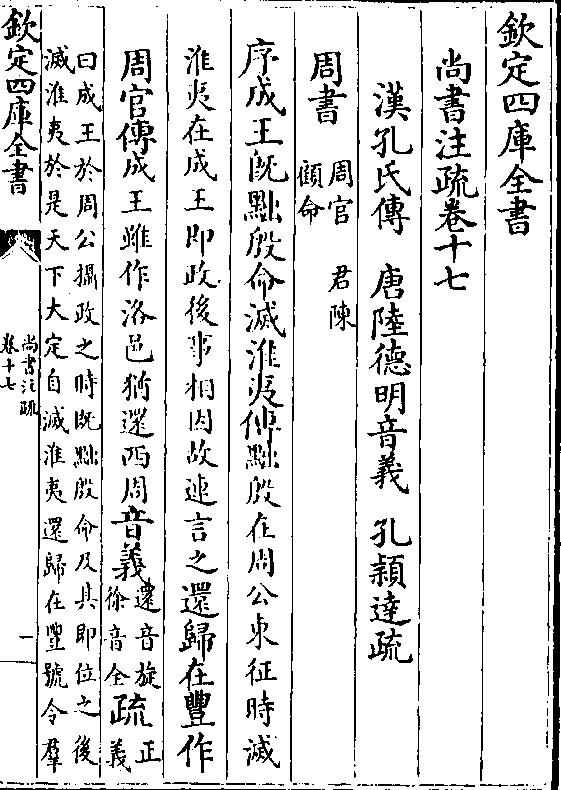 欽定四庫全書
尚書注疏卷十七
漢孔氏傳　唐陸德明音義　孔穎達疏
周書　周官　君陳
顧命
序成王既黜殷命滅淮夷傳黜殷在周公東征時滅
淮夷在成王即政後事相因故連言之還歸在豐作
周官傳成王雖作洛邑猶還西周音義還音旋
徐音全疏正
義
曰成王於周公攝政之時既黜殷命及其即位之後
滅淮夷於是天下大定自滅淮夷還歸在豐號令羣
欽定四庫全書
尚書注疏
卷十七
一